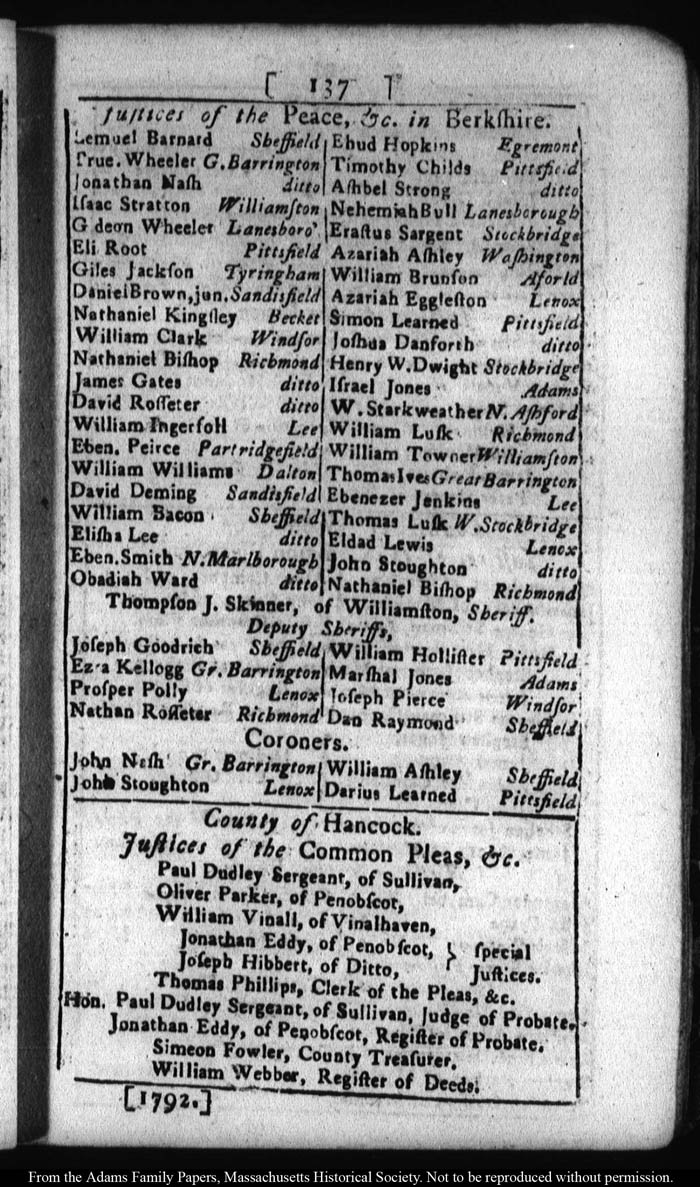 [ 137 ]
Juſtices of the Peace, &c. in Berkſhire.
Lemuel Barnard Sheffield
True. Wheeler G. Barrington
Jonathan Naſh ditto
Iſaac Stratton Williamſton
Gideon Wheeler Laneſboro'.
Eli Root Pittsfield
Giles Jackſon Tyringham
Daniel Brown, jun. Sandisfield
Nathaniel Kingſley Becket
William Clark Windſor
Nathaniel Biſhop Richmond
James Gates ditto
David Roſſeter ditto
William Ingerſoll Lee
Eben. Peirce Partridgefield
William Williams Dalton
David Deming Sandisfield
William Bacon Sheffield
Eliſha Lee ditto
Eben. Smith N. Marlborough
Obadiah Ward ditto
Ehud Hopkins Egremont
Timothy Childs Pittsfield
Aſhbel Strong ditto
Nehemiah Bull Lanesborough
Eraſtus Sargent Stockbridge
Azariah Aſhley Waſhington
William Brunſon Aforld
Azariah Eggleſton Lenox
Simon Learned Pittsfield
Joſhua Danforth ditto
Henry W. Dwight Stockbridge
Iſrael Jones Adams
W. Starkweather N. Aſhford
William Luſk Richmond
William Towner Williamſton
Thomas Ives Great Barrington
Ebenezer Jenkins Lee
Thomas Luſk W. Stockbridge
Eldad Lewis Lenox
John Stoughton ditto
Nathaniel Biſhop Richmond
Thompſon J. Skinner, of Williamſton, Sheriff.
Deputy Sheriffs,
Joſeph Goodrich Sheffield
Ezra Kellogg Gr. Barrington
Proſper Polly Lenox
Nathan Roſſeter Richmond
William Holliſter Pittsfield
Marſhal Jones Adams
Joſeph Pierce Windſor
Dan Raymond Sheffield
Coroners.
John Naſh Gr. Barrington
John Stoughton Lenox
William Aſhley Sheffield
Darius Learned Pittsfield
County of Hancock.
Juſtices of the Common Pleas, &c.
Paul Dudley Sergeant, of Sullivan,
Oliver Parker, of Penobſcot,
William Vinall, of Vinalhaven,
Jonathan Eddy, of Penobſcot, } ſpecial
Joſeph Hibbert, of Ditto, Juſtices.
Thomas Phillips, Clerk of the Pleas, &c.
Hon. Paul Dudley Sergeant, of Sullivan, Judge of Probate.
Jonathan Eddy, of Penobſcot, Regiſter of Probate.
Simeon Fowler, County Treaſurer.
William Webber, Regiſter of Deeds.
[1792.]
From the Adams Family Papers, Massachusetts Historical Society. Not to be reproduced without permission.